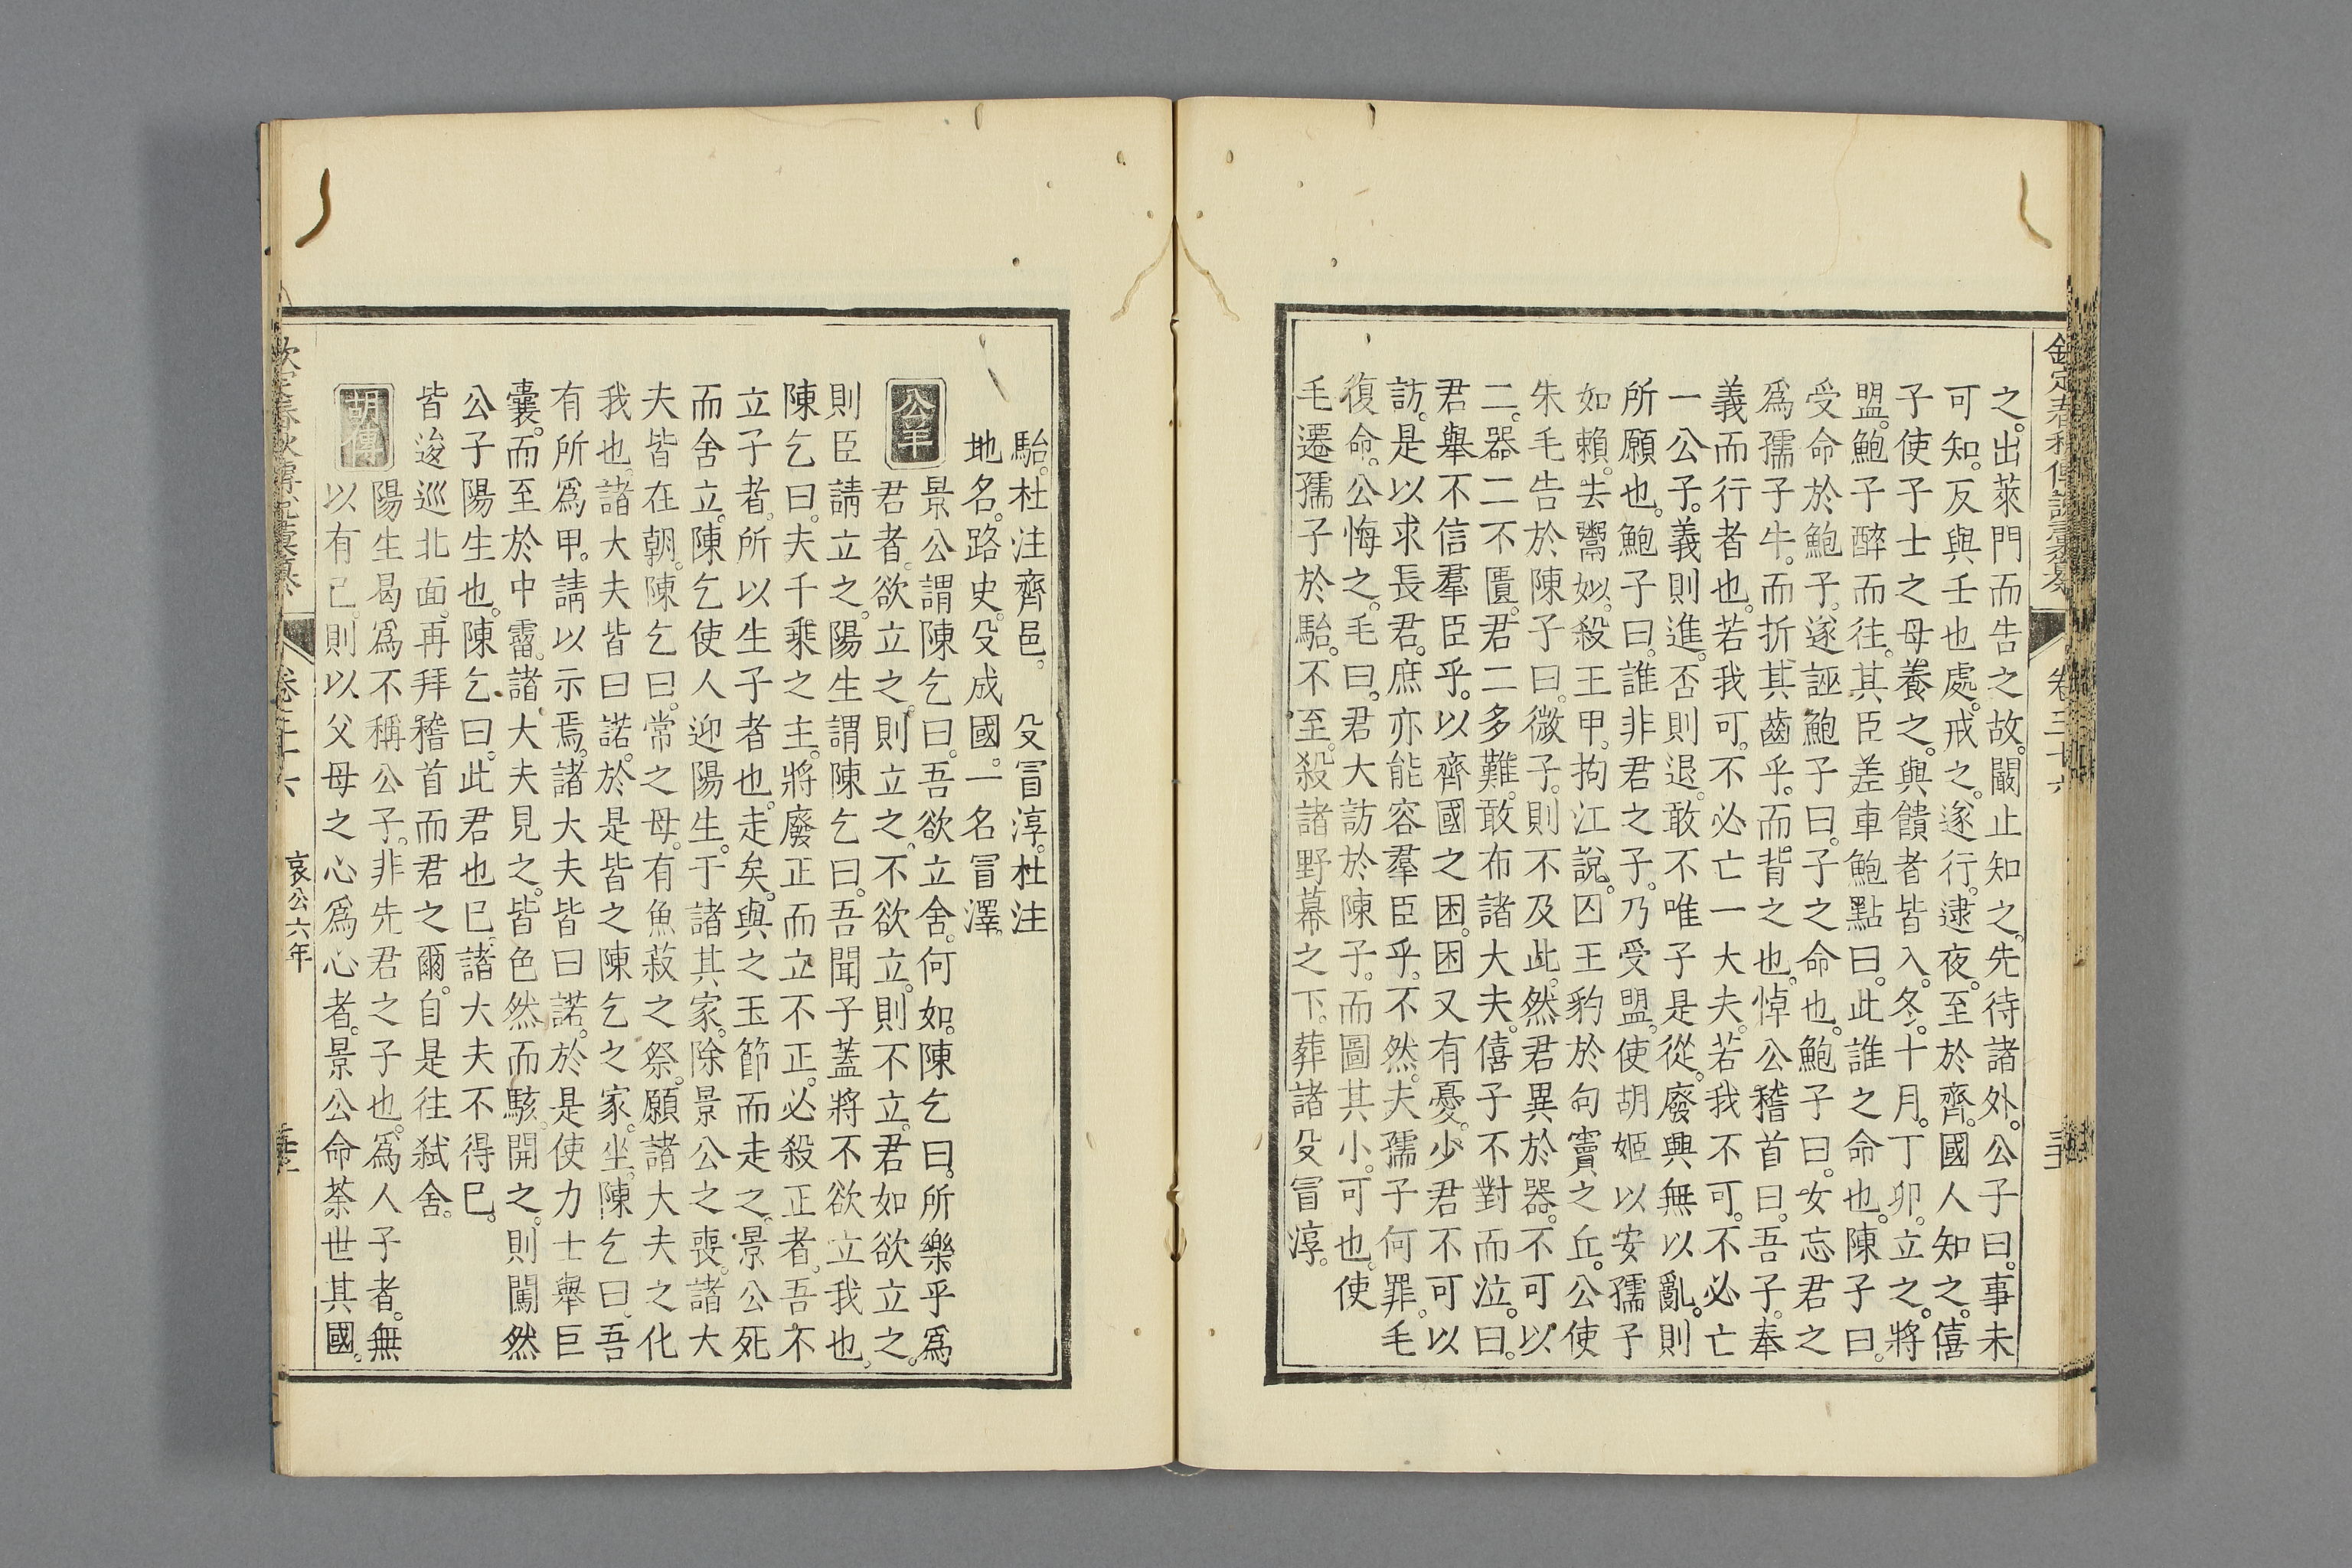 之。出萊門而告之故。闞止知之。先待諸外。公子曰。事未
可知。反與壬也處。戒之。遂行。逮夜。至於齊。國人知之。僖
子使子士之母養之。與饋者皆入。冬。十月。丁卯。立之。將
盟。鮑子醉而往。其臣差車鮑點曰。此誰之命也。陳子曰。
受命於鮑子。遂誣鮑子曰。子之命也。鮑子曰。女忘君之
爲孺子牛。而折其齒乎。而背之也。悼公稽首曰。吾子。奉
義而行者也。若我可。不必亡一大夫。若我不可。不必亡
一公子。義則進。否則退。敢不唯子是從。廢興無以亂。則
所願也。鮑子曰。誰非君之子。乃受盟。使胡姬以安孺子
如賴。去鬻姒。殺王甲。拘江說。囚王豹於句竇之丘。公使
朱毛告於陳子曰。微子。則不及此。然君異於器。不可以
二。器二不匱。君二多難。敢布諸大夫。僖子不對而泣。曰。
君舉不信羣臣乎。以齊國之困。困又有憂。少君不可以
訪。是以求長君。庶亦能容羣臣乎。不然。夫孺子何罪。毛
復命。公悔之。毛曰。君大訪於陳子。而圖其小。可也。使
毛遷孺子於駘。不至。殺諸野幕之下。葬諸殳冒淳。
駘。杜注齊邑。 殳冒淳。杜注
地名。路史。殳成國。一名冒澤。
公羊 景公謂陳乞曰。吾欲立舍。何如。陳乞曰。所樂乎爲
君者。欲立之。則立之。不欲立。則不立。君如欲立之。
則臣請立之。陽生謂陳乞曰。吾聞子蓋將不欲立我也。
陳乞曰。夫千乘之主。將廢正而立不正。必殺正者。吾不
立子者。所以生子者也。走矣。與之玉節而走之。景公死
而舍立。陳乞使人迎陽生。于諸其家。除景公之喪。諸大
夫皆在朝。陳乞曰。常之母。有魚菽之祭。願諸大夫之化
我也。諸大夫皆曰諾。於是皆之陳乞之家。坐。陳乞曰。吾
有所爲甲。請以示焉。諸大夫皆曰諾。於是使力士舉巨
囊。而至於中霤。諸大夫見之。皆色然而駭。開之。則闖然
公子陽生也。陳乞曰。此君也已。諸大夫不得已。
皆逡巡北面。再拜稽首而君之爾。自是往弑舍。
胡傳 陽生曷爲不稱公子。非先君之子也。爲人子者。無
以有已。則以父母之心爲心者。景公命荼世其國。
卷三十六 哀公六年